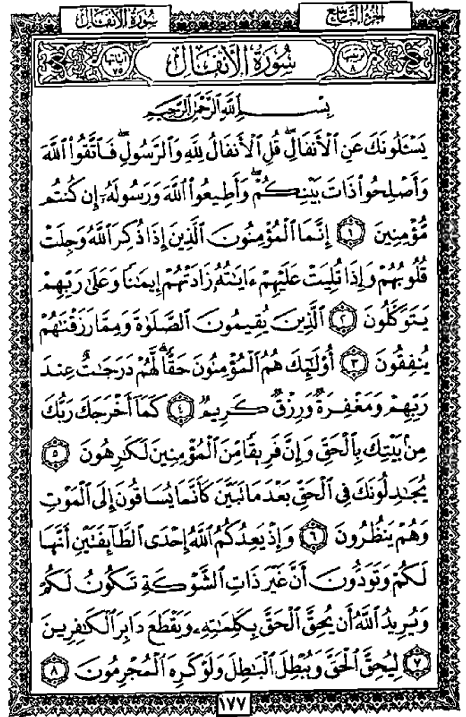 سُورَةُ الأَنفَال الجزء التاسع
آياتها ٧٥ سُورَةُ الأَنفَالِ ترتيبها ٨
بِسْمِ اللَّهِ الرَّحْمَٰنِ الرَّحِيمِ
يَسْـَٔلُونَكَ عَنِ ٱلْأَنفَالِۖ قُلِ ٱلْأَنفَالُ لِلَّهِ وَٱلرَّسُولِۖ فَٱتَّقُوا۟ ٱللَّهَ
وَأَصْلِحُوا۟ ذَاتَ بَيْنِكُمْۖ وَأَطِيعُوا۟ ٱللَّهَ وَرَسُولَهُۥٓ إِن كُنتُم
مُّؤْمِنِينَ ١ إِنَّمَا ٱلْمُؤْمِنُونَ ٱلَّذِينَ إِذَا ذُكِرَ ٱللَّهُ وَجِلَتْ
قُلُوبُهُمْ وَإِذَا تُلِيَتْ عَلَيْهِمْ ءَايَٰتُهُۥ زَادَتْهُمْ إِيمَٰنًا وَعَلَىٰ رَبِّهِمْ
يَتَوَكَّلُونَ ٢ ٱلَّذِينَ يُقِيمُونَ ٱلصَّلَوٰةَ وَمِمَّا رَزَقْنَٰهُمْ
يُنفِقُونَ ٣ أُو۟لَٰٓئِكَ هُمُ ٱلْمُؤْمِنُونَ حَقًّاۚ لَّهُمْ دَرَجَٰتٌ عِندَ
رَبِّهِمْ وَمَغْفِرَةٌ وَرِزْقٌ كَرِيمٌ ٤ كَمَآ أَخْرَجَكَ رَبُّكَ
مِنۢ بَيْتِكَ بِٱلْحَقِّ وَإِنَّ فَرِيقًا مِّنَ ٱلْمُؤْمِنِينَ لَكَٰرِهُونَ ٥
يُجَٰدِلُونَكَ فِى ٱلْحَقِّ بَعْدَ مَا تَبَيَّنَ كَأَنَّمَا يُسَاقُونَ إِلَى ٱلْمَوْتِ
وَهُمْ يَنظُرُونَ ٦ وَإِذْ يَعِدُكُمُ ٱللَّهُ إِحْدَى ٱلطَّآئِفَتَيْنِ أَنَّهَا
لَكُمْ وَتَوَدُّونَ أَنَّ غَيْرَ ذَاتِ ٱلشَّوْكَةِ تَكُونُ لَكُمْ
وَيُرِيدُ ٱللَّهُ أَن يُحِقَّ ٱلْحَقَّ بِكَلِمَٰتِهِۦ وَيَقْطَعَ دَابِرَ ٱلْكَٰفِرِينَ
٧ لِيُحِقَّ ٱلْحَقَّ وَيُبْطِلَ ٱلْبَٰطِلَ وَلَوْ كَرِهَ ٱلْمُجْرِمُونَ ٨
١٧٧